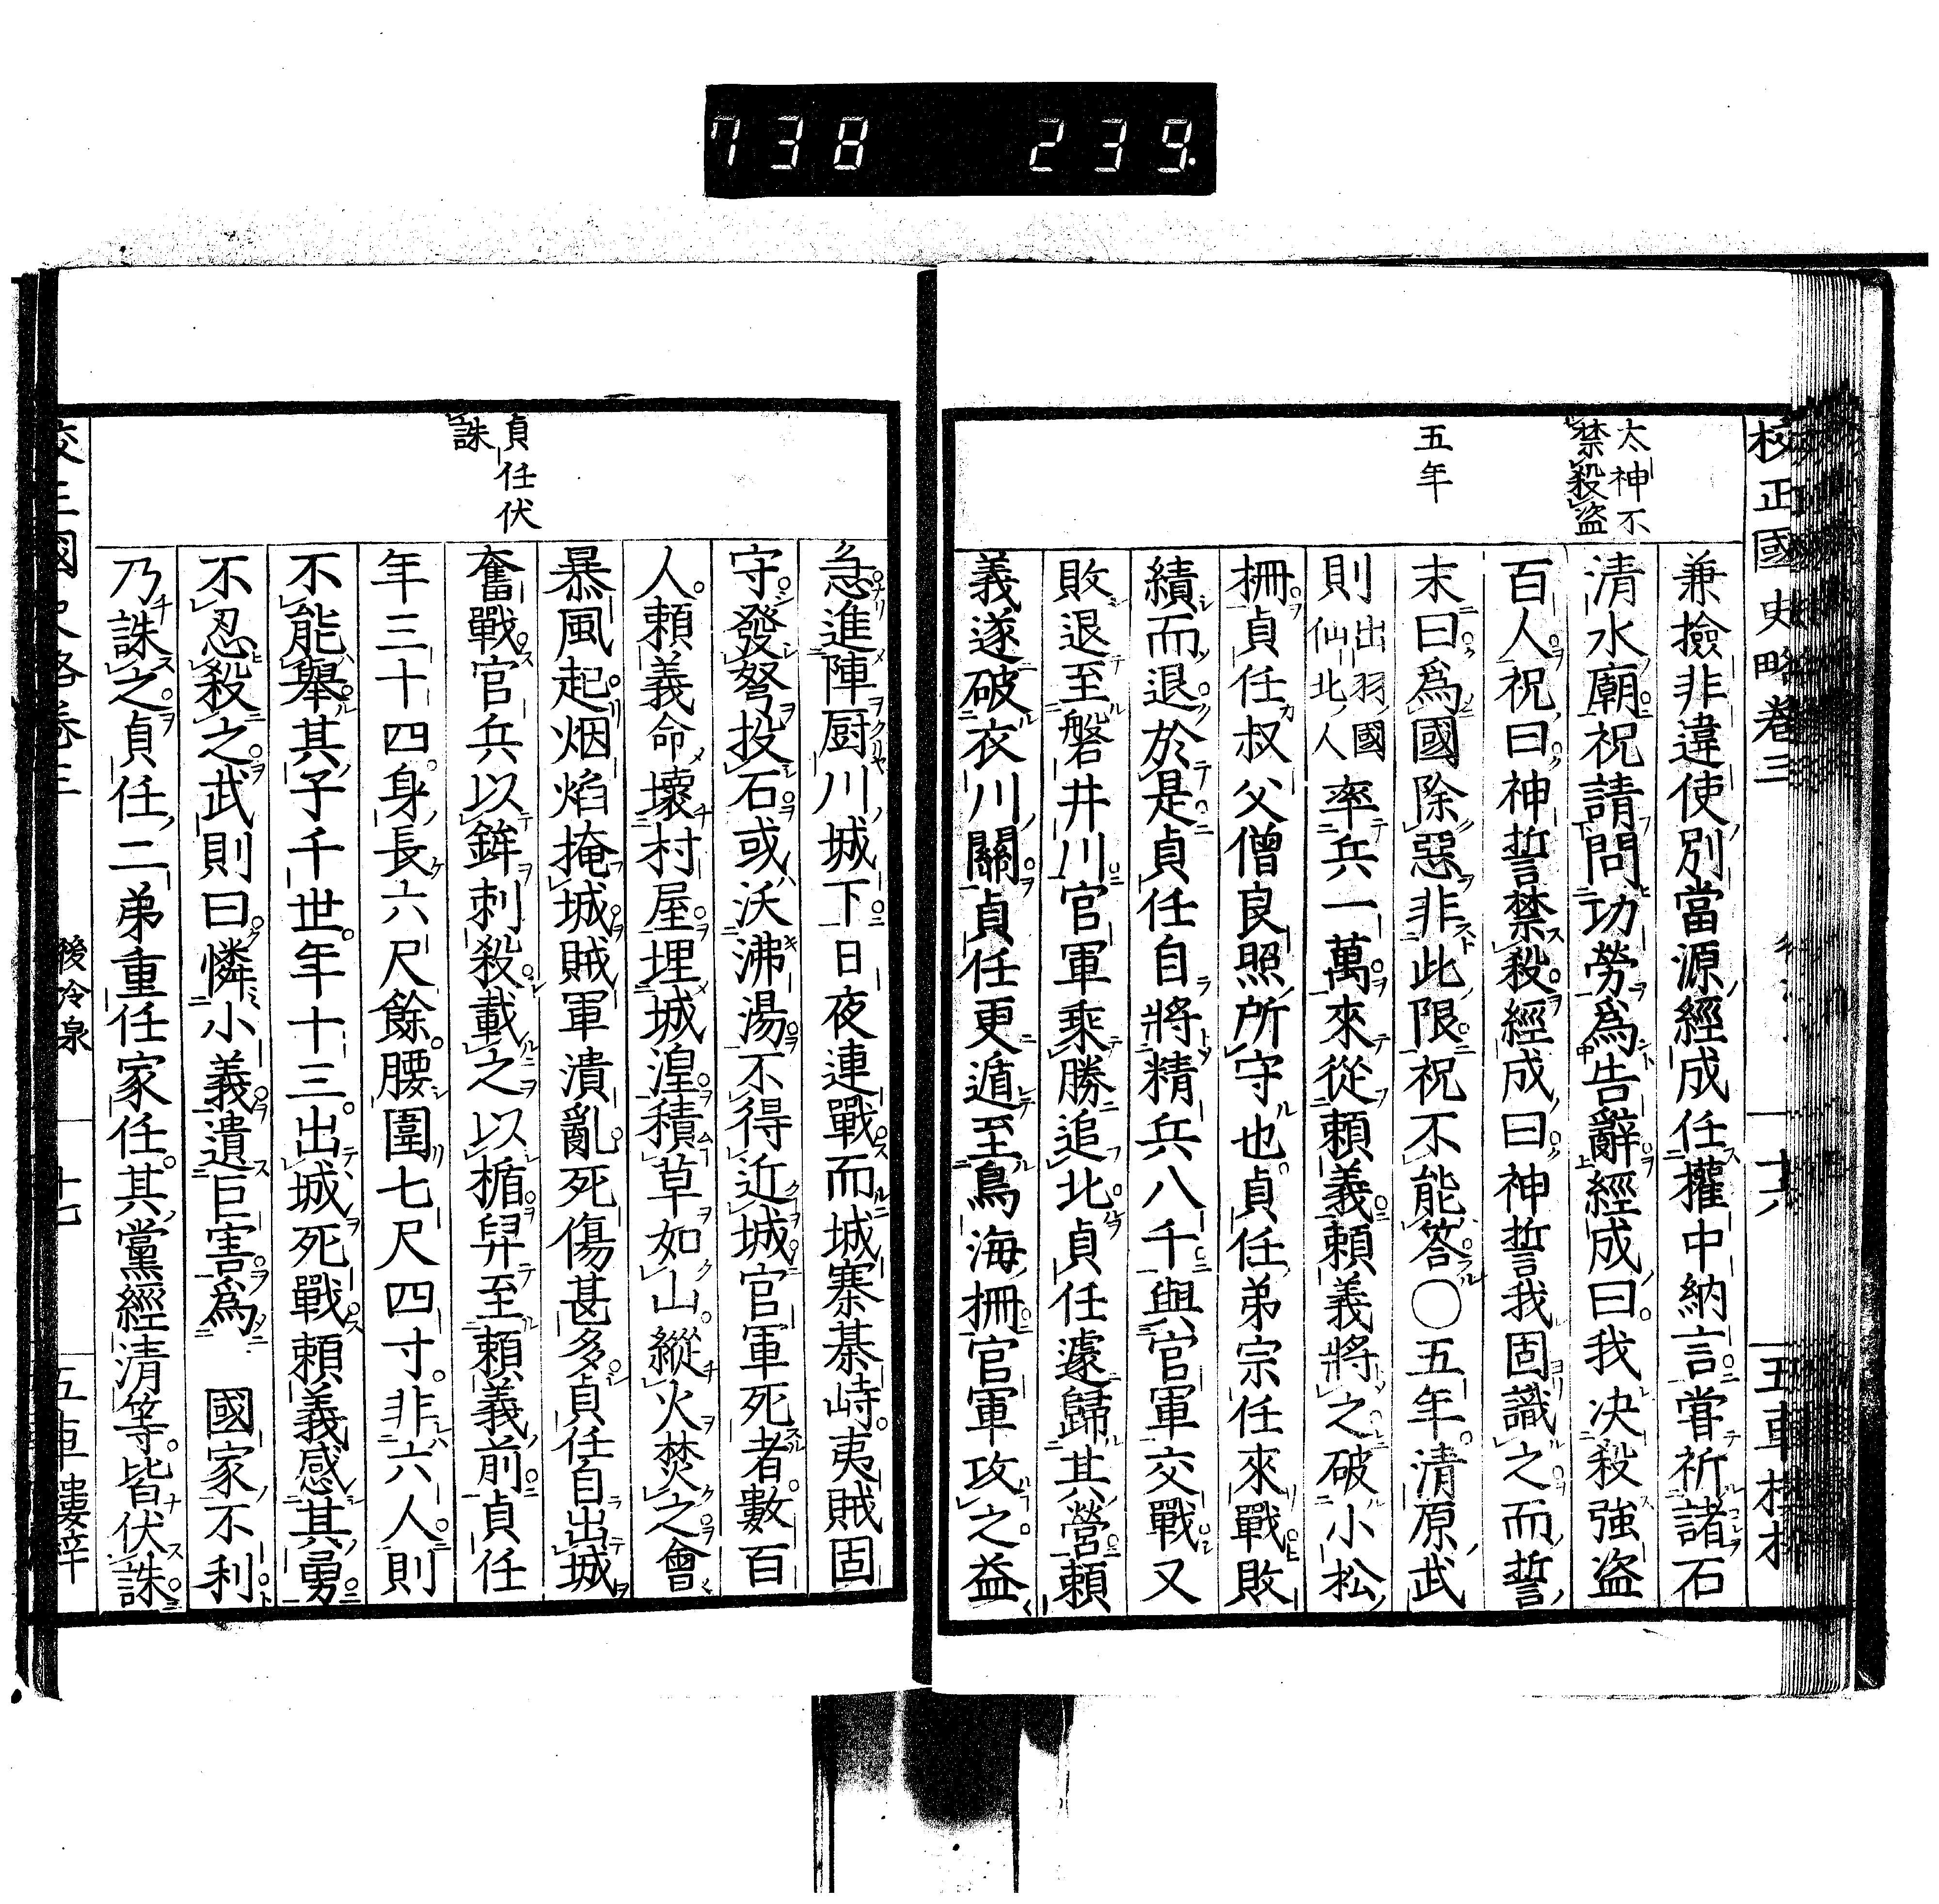 738 239.
校正國史略卷三
十六
太神不
禁殺盗
五年
兼撿非違使別當源經成任權中納言甞祈諸石
清水廟祝請問功勞爲告辭經成曰我决殺強盗
百人祝曰神誓禁殺經成曰神誓我固識之而誓
末曰爲國除惡非此限祝不能答〇五年清原武
則出羽國仙北人率兵一萬來從頼義頼義將之破小松
柵貞任叔父僧良照所守也貞任弟宗任來戰敗
績而退於是貞任自將精兵八千與官軍交戰又
敗退至磐井川官軍乘勝追北貞任遽歸其營頼
義遂破衣川關貞任更遁至鳥海柵官軍攻之益
貞任伏
誅
急進陣厨川城下日夜連戰而城寨棊峙夷賊固
守發弩投石或沃沸湯不得近城官軍死者數百
人頼義命壞村屋埋城湟積草如山縱火焚之會
暴風起烟焰掩城賊軍潰亂死傷甚多貞任自出城
奮戰官兵以鉾刺殺載之以楯舁至頼義前貞任
年三十四身長六尺餘腰圍七尺四寸非六人則
不能舉其子千世年十三出城死戰頼義感其勇
不忍殺之武則曰憐小義遺巨害爲 國家不利
乃誅之貞任二弟重任家任其黨經清等皆伏誅
後冷泉
十七
五車樓梓